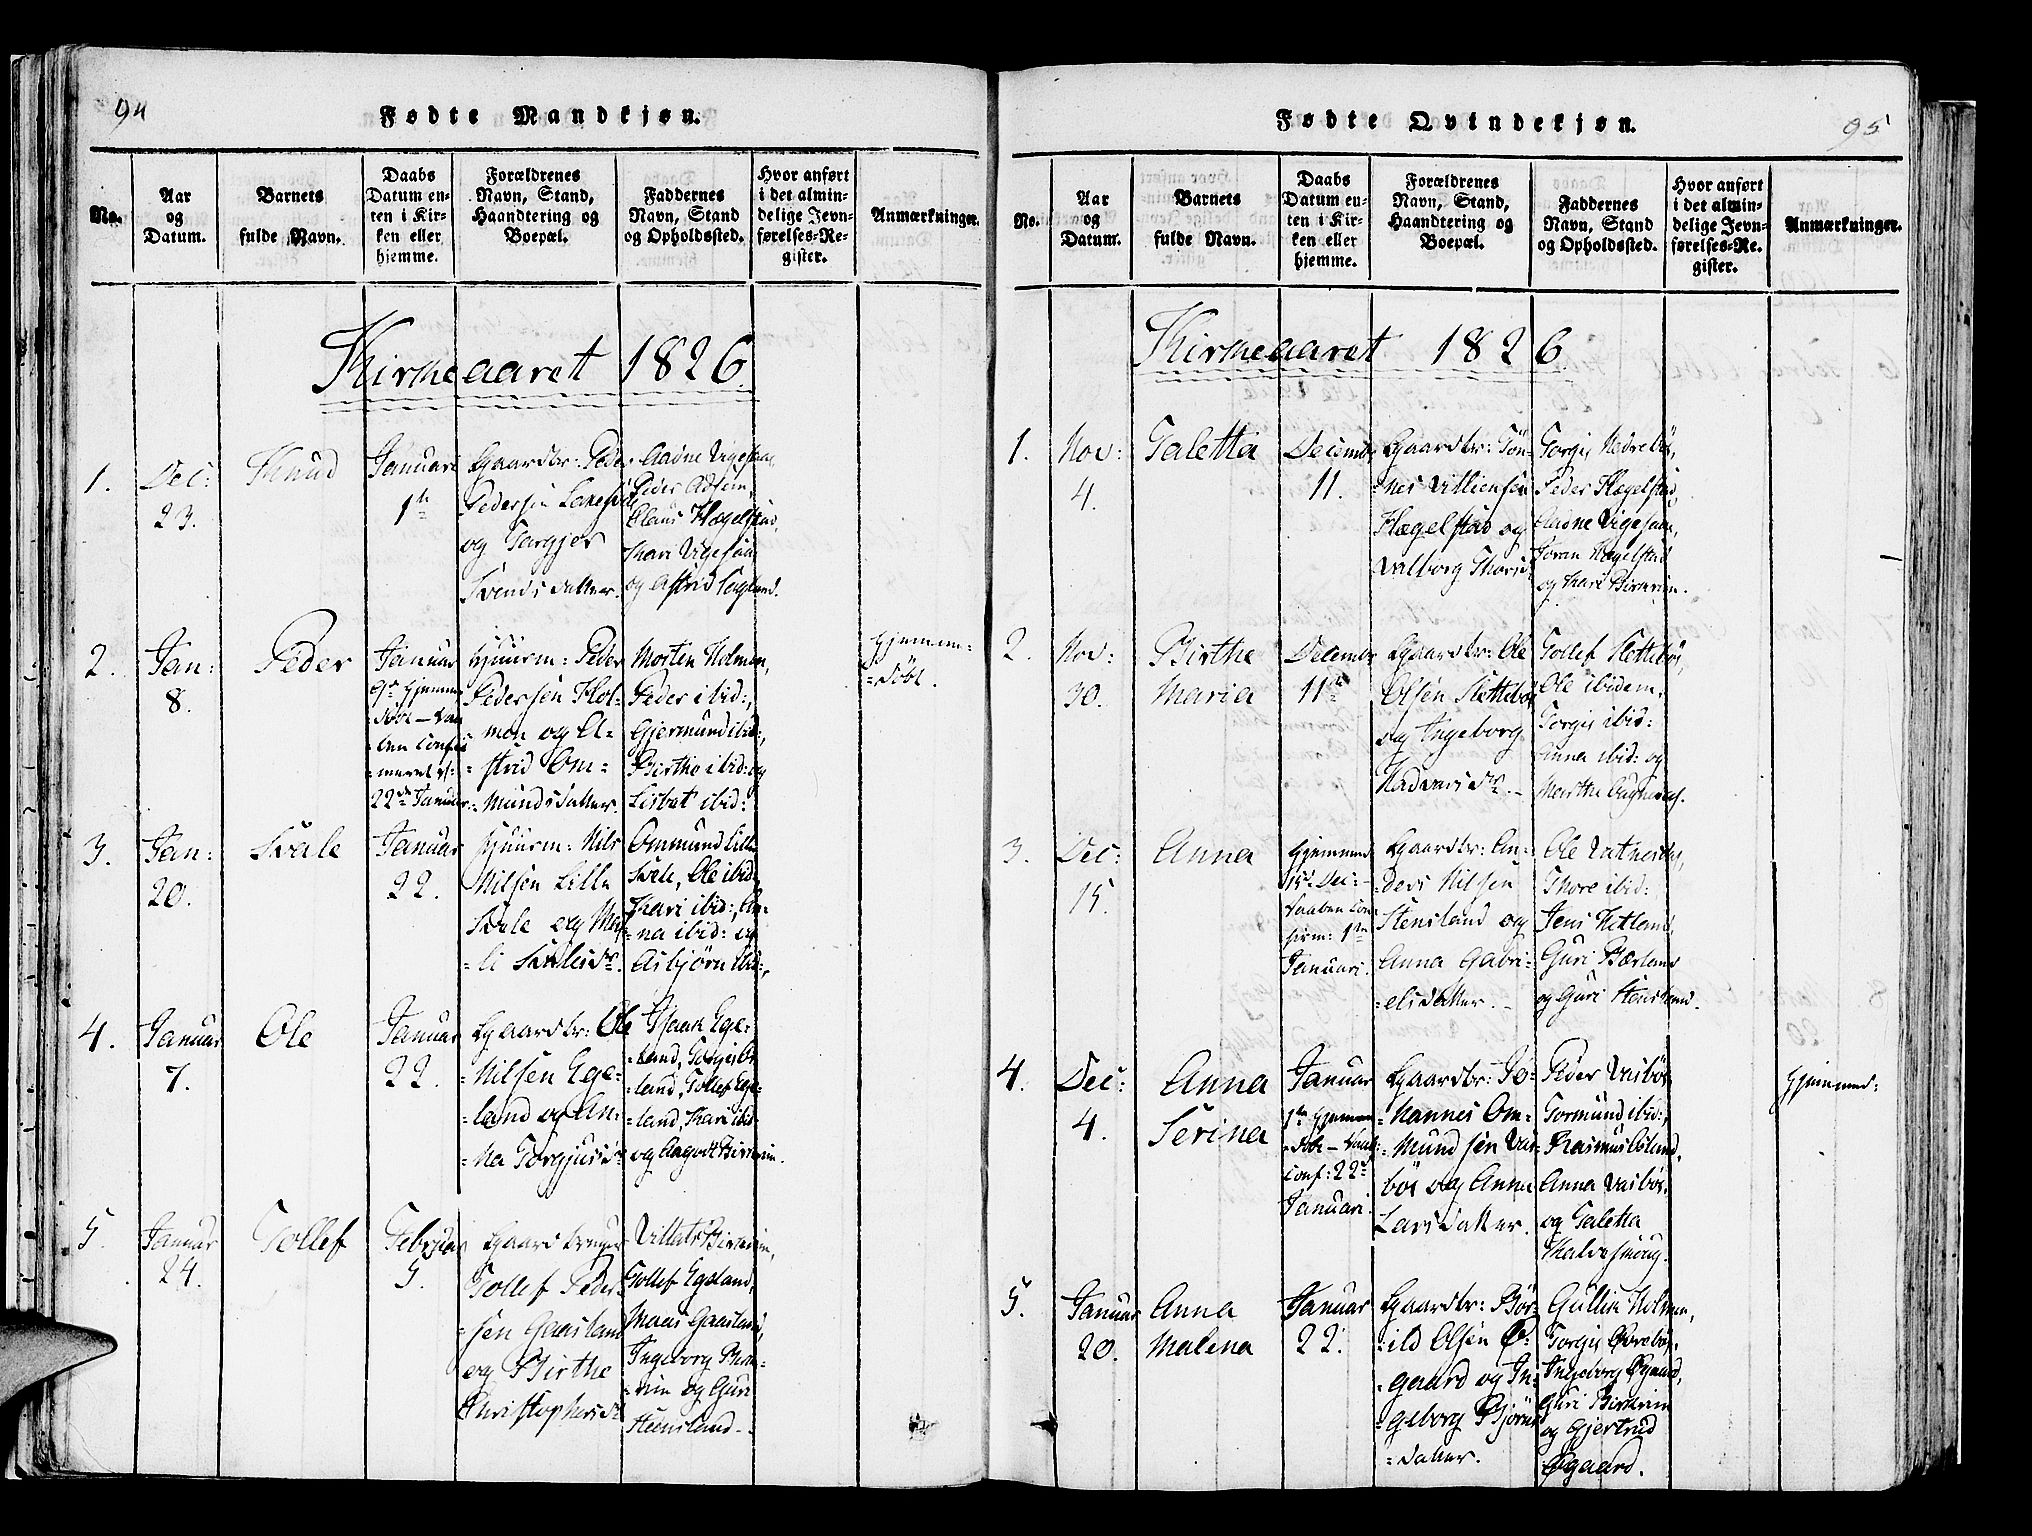 94
Fødte Mandkjøn.
No.
Aar
og
Datum.
Barnets
fulde Navn.
Daabs
Datum en-
ten i Kir-
ken eller
hjemme.
Forældrenes
Navn, Stand,
Haandtering og
Boepæl.
Faddernes
Navn, Stand
og Opholdssted.
Hvor anført
i det almin-
delige Jevn-
førelses-Re-
gister.
Anmærkninger.
Kirkeaaret 1826.
1.
Dec:
23.
Knud
Januari
1te
Gaardbr: Peder
Pedersen
og Torgjer
Svends datter.
Aadne Vigesaa,
Peder Adsem,
Claus Hægelstad,
Kari Vigesaa
og Astrid
2.
Jan:
8.
Peder
Januar
9de Hjemme-
døbt
22de Januar
Huusm: Peder
Pedersen Hol-
men og A-
strid Om-
mundsdatter.
Morten Holmen,
Peder ibid:,
Gjermund ibid:,
Birthe ibid: og
Lisbet ibid:
Hjemme-
døbt.
3.
Jan:
20.
Svale
Januar
22.
Huusm: Nils
Nilsen Lille
Svale og
Svalesdr.
Ommund Lille
Svale, Ole ibid:
Kari ibid:, An-
na ibid: og
Asbjørn ibid:,
4.
Januar
7.
Ole
Januar
22.
Gaardbr: Ole
Nilsen Ege-
land og An-
na Torgjusdr
Isaak Ege-
land, Torgis
land, Tollef Ege-
land, Kari ibid
og Aagodt Birkrim.
5.
Januar
24.
Tollef
Februar
5.
Gaardbruger
Tollef Peder-
sen Gaasland
og Birthe
Christophersdr
Villats Birkrim,
Tollef Egeland,
Maas Gaasland,
Ingeborg Birk-
rim og Guri
Steensland.
95
Fødte Qvindekjøn.
No.
Aar
og
Datum.
Barnets
fulde Navn.
Daabs
Datum en-
ten i Kir-
ken eller
hjemme.
Forældrenes
Navn, Stand,
Haandtering og
Boepæl.
Faddernes
Navn, Stand
og Opholdssted.
Hvor anført
i det almin-
delige Jevn-
førelses-Re-
gister.
Anmærkninger.
Kirkeaaret 1826
1.
Nov:
4.
Taletta
Decembr
11.
Gaardbr: Tøn-
nes Villiensen
Hægelstad og
Valborg
Torgis Nedrebøe,
Peder Hægelstad,
Aadne Vigesaae,
Joren Hægelstad
og Kari Birkrim.
2.
Nov:
30.
Birthe
Maria
Decembr
11te
Gaardbr: Ole
Olsen Slettebøe
og Ingeborg
Hadvarsdr.
Tollef Slettebøe,
Ole ibidem,
Torgis ibid:
Anna ibid: og
Marthe
3.
Dec:
15.
Anna
Hjemmed
15d Dec:
Daaben Con-
firm: 1te
Januari.
Gaardbr: An-
ders Nilsen
Stensland og
Anna Gabri-
elsdatter.
Ole
Thore ibid:
Jens Hetland,
Guri Bærland
og Guri Stensland.
4.
Dec:
4.
Anna
Serina
Januar
1te Hjemme-
døbt - Daab:
Conf: 22d
Januari.
Gaardbr: Jo-
hannes Om-
mundsen Vas-
bøe og Anna
Larsdatter.
Peder Vasbøe,
Tormund ibid:,
Rasmus
Anna Vasbøe.
og Taletta
Hjemmed:
5.
Januar
20.
Anna
Malena
Januar
22.
Gaardbr: Bør-
ild Olsen Ø-
gaard og In-
geborg Bjørns
datter.
Gullik Holmen,
Torgis Øvrebøe,
Ingeborg Øgaard,
Guri Birkrim
og Gjertrud
Øgaard.